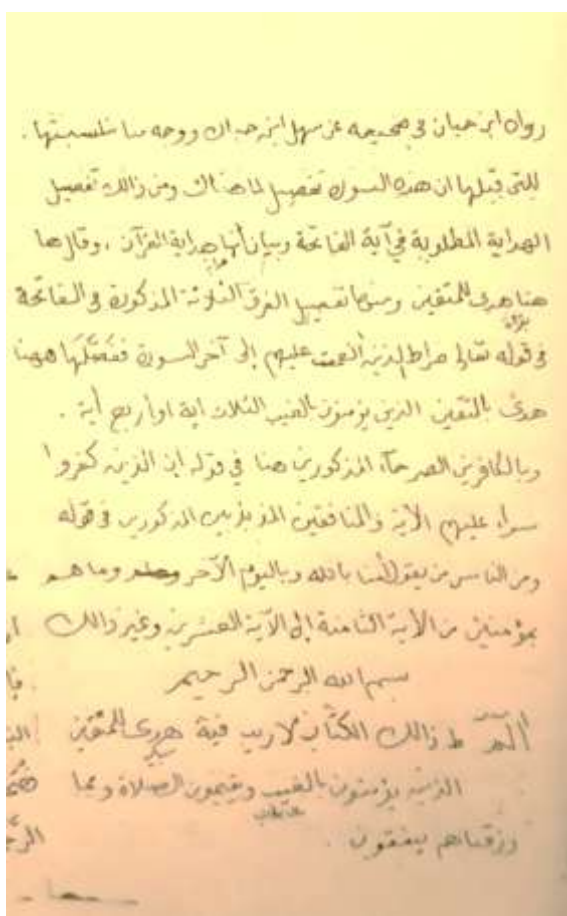 رواه ابن حبان في صحيحه عن سهل ابن ووجه مناسبتها .
للتي قبلها ان هذه السورة تفصيل لما هناك ومن ذالك تفصيل
الهداية المطلوبة في آية الفاتحة وبيان أنها هداية القرآن ، وقال ها
هنا هدى للمتقين ومنها تفصيل الفرق الثلاثة المذكورة في الفاتحة
في قوله تعالى صراط الذين أنعمت عليهم إلى آخر السورة ههنا
هدى بالتقين الذين يؤمنون بالغيب الثلاث اية او أربع أية .
وبالكافرين الصرحاء المذكورين هنا في قوله ان الذين كفروا
سواء عليهم الأية والمنافقين المذبذبين المذكورين في قوله
ومن الناس من يقول أمنا بالله وباليوم الآخر وما هم
بمؤمنين من الأية الثامنة إلى الآية العشرين وغير ذالك
بسم الله الرحمن الرحيم
الٓمٓ ط ذالك الكتاب لا ريب فية هدى للمتقين
الذين يؤمنون بالغيب ويقيمون الصلاة ومما
رزقناهم ينفقون .